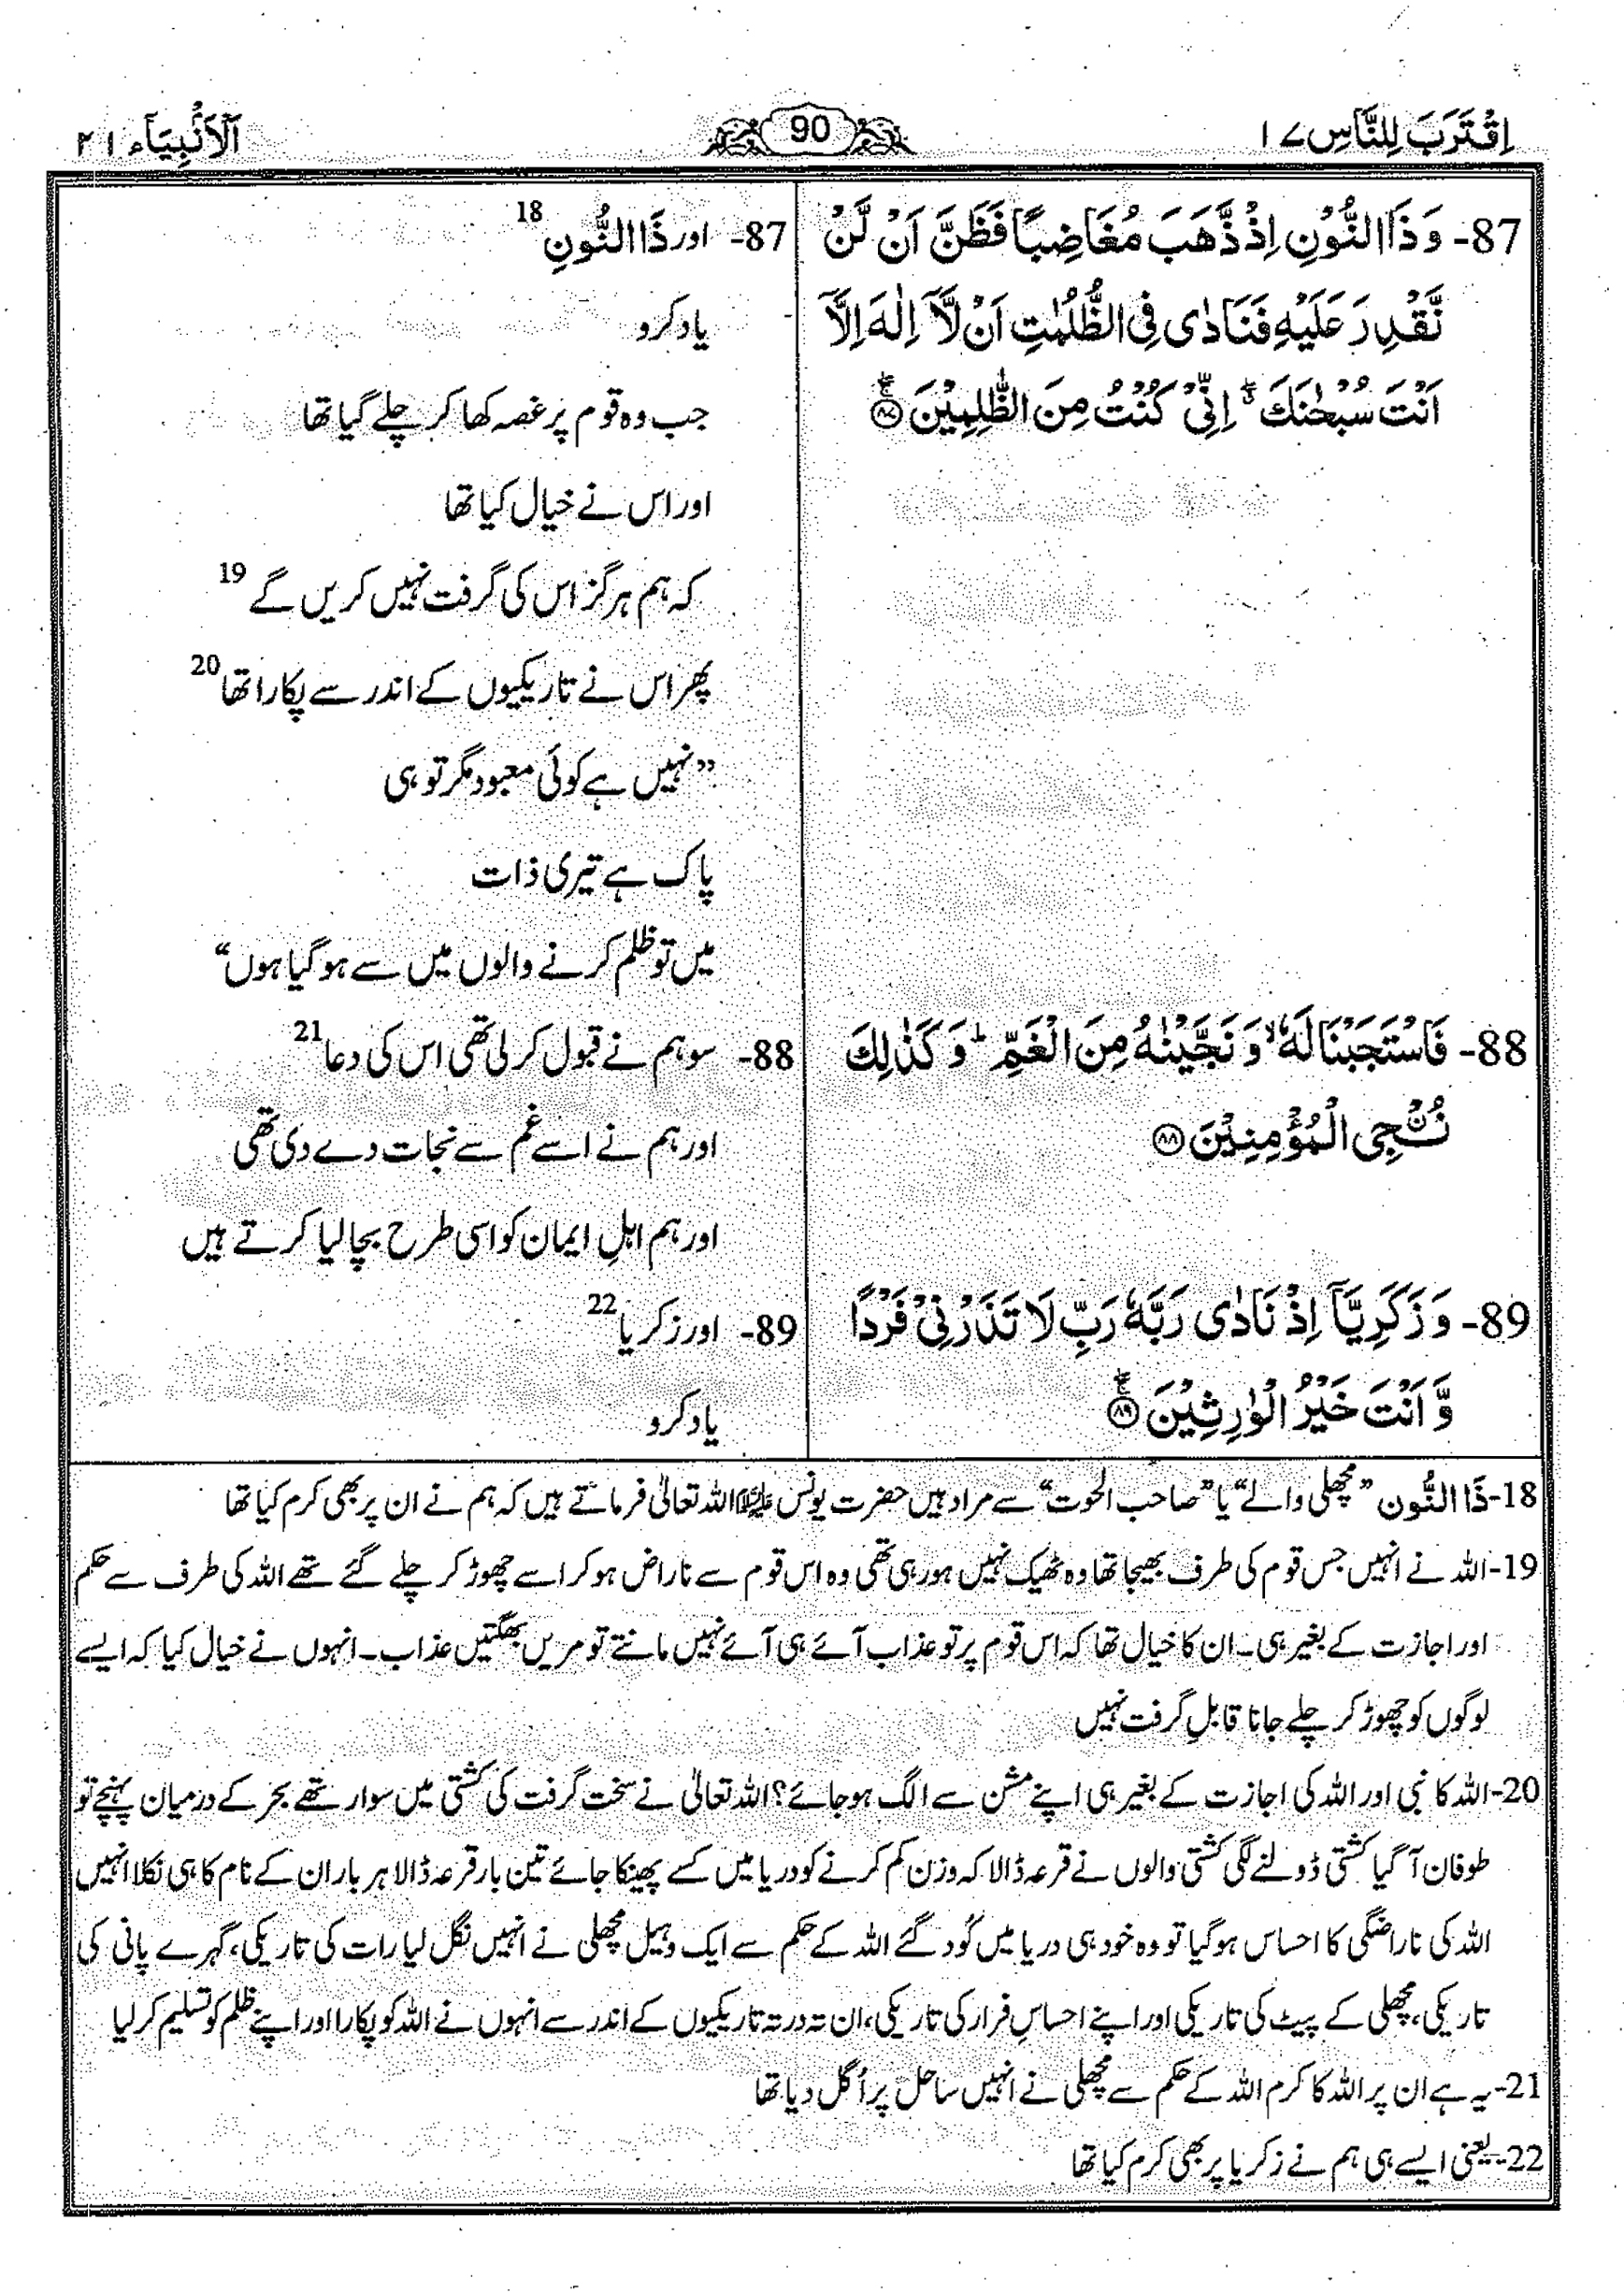 اِقْتَرَبَ لِلنَّاسِ ۱۷
90
اَلْاَنْۢبِيَآء ۲۱
87- وَ ذَا النُّوْنِ اِذْ ذَّهَبَ مُغَاضِبًا فَظَنَّ اَنْ لَّنْ
نَّقْدِرَ عَلَيْهِ فَنَادٰى فِى الظُّلُمٰتِ اَنْ لَّاۤ اِلٰهَ اِلَّاۤ
اَنْتَ سُبْحٰنَكَ ۖ اِنِّىْ كُنْتُ مِنَ الظّٰلِمِيْنَ ۚ ﴿۸۷﴾
88- فَاسْتَجَبْنَا لَهٗ ۙ وَ نَجَّيْنٰهُ مِنَ الْغَمِّ ؕ وَ كَذٰلِكَ
نُـنْۢجِى الْمُؤْمِنِيْنَ ﴿۸۸﴾
89- وَ زَكَرِيَّاۤ اِذْ نَادٰى رَبَّهٗ رَبِّ لَا تَذَرْنِىْ فَرْدًا
وَّ اَنْتَ خَيْرُ الْوٰرِثِيْنَ ۚ ﴿۸۹﴾
87- اور ذَا النُّونِ 18
یاد کرو
جب وہ قوم پر غصہ کھا کر چلے گیا تھا
اور اس نے خیال کیا تھا
کہ ہم ہرگز اس کی گرفت نہیں کریں گے 19
پھر اس نے تاریکیوں کے اندر سے پکارا تھا 20
”نہیں ہے کوئی معبود مگر تو ہی
پاک ہے تیری ذات
میں تو ظلم کرنے والوں میں سے ہو گیا ہوں“
88- سو ہم نے قبول کر لی تھی اس کی دعا 21
اور ہم نے اسے غم سے نجات دے دی تھی
اور ہم اہلِ ایمان کو اسی طرح بچا لیا کرتے ہیں
89- اور زکریا 22
یاد کرو
18- ذَا النُّون ”مچھلی والے“ یا ”صاحب الحوت“ سے مراد ہیں حضرت یونس علیہ السلام اللہ تعالیٰ فرماتے ہیں کہ ہم نے ان پر بھی کرم کیا تھا
19- اللہ نے انہیں جس قوم کی طرف بھیجا تھا وہ ٹھیک نہیں ہو رہی تھی وہ اس قوم سے ناراض ہو کر اسے چھوڑ کر چلے گئے تھے اللہ کی طرف سے حکم
اور اجازت کے بغیر ہی۔ ان کا خیال تھا کہ اس قوم پر تو عذاب آئے ہی آئے نہیں مانتے تو مریں بھگتیں عذاب۔ انہوں نے خیال کیا کہ ایسے
لوگوں کو چھوڑ کر چلے جانا قابلِ گرفت نہیں
20- اللہ کا نبی اور اللہ کی اجازت کے بغیر ہی اپنے مشن سے الگ ہو جائے؟ اللہ تعالیٰ نے سخت گرفت کی کشتی میں سوار تھے بحر کے درمیان پہنچے تو
طوفان آ گیا کشتی ڈولنے لگی کشتی والوں نے قرعہ ڈالا کہ وزن کم کرنے کو دریا میں کسے پھینکا جائے تین بار قرعہ ڈالا ہر بار ان کے نام کا ہی نکلا انہیں
اللہ کی ناراضگی کا احساس ہو گیا تو وہ خود ہی دریا میں کُود گئے اللہ کے حکم سے ایک وہیل مچھلی نے انہیں نگل لیا رات کی تاریکی، گہرے پانی کی
تاریکی، مچھلی کے پیٹ کی تاریکی اور اپنے احساسِ فرار کی تاریکی، ان تہ در تہ تاریکیوں کے اندر سے انہوں نے اللہ کو پکارا اور اپنے ظلم کو تسلیم کر لیا
21- یہ ہے ان پر اللہ کا کرم اللہ کے حکم سے مچھلی نے انہیں ساحل پر اُگل دیا تھا
22- یعنی ایسے ہی ہم نے زکریا پر بھی کرم کیا تھا